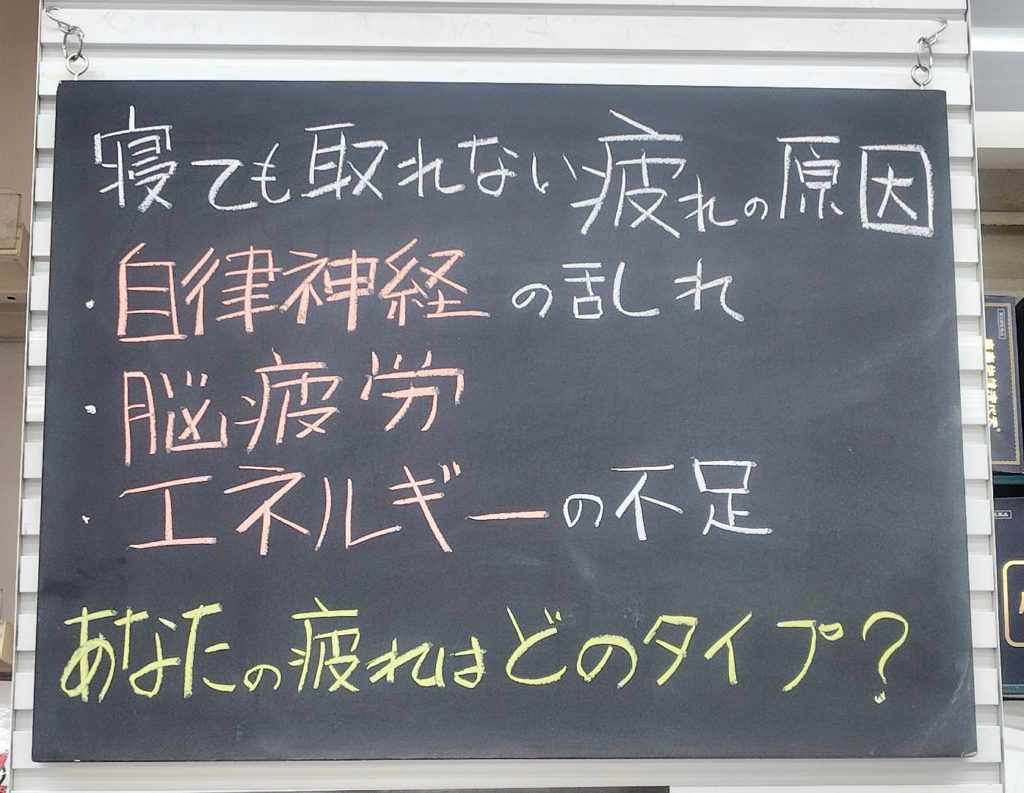 寝ても取れない疲れの原因
・自律神経の乱れ
・脳疲労
・エネルギーの不足
あなたの疲れはどのタイプ?